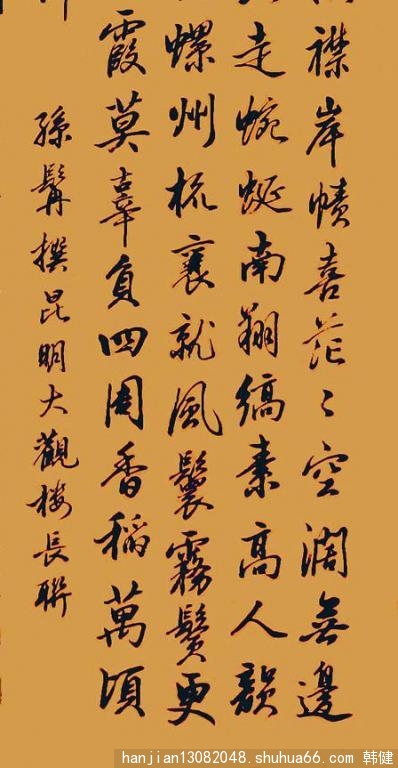 襟岸幘喜茫々空闊無邊
走蜿蜒南翔縞素高人韻
螺州梳裹就風鬟霧鬢更
霞莫辜負四周香稻萬頃
孫髯撰昆明大觀樓長聯
hanjian13082048.shuhua66.com 韩健